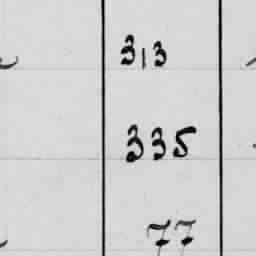 313
335
77